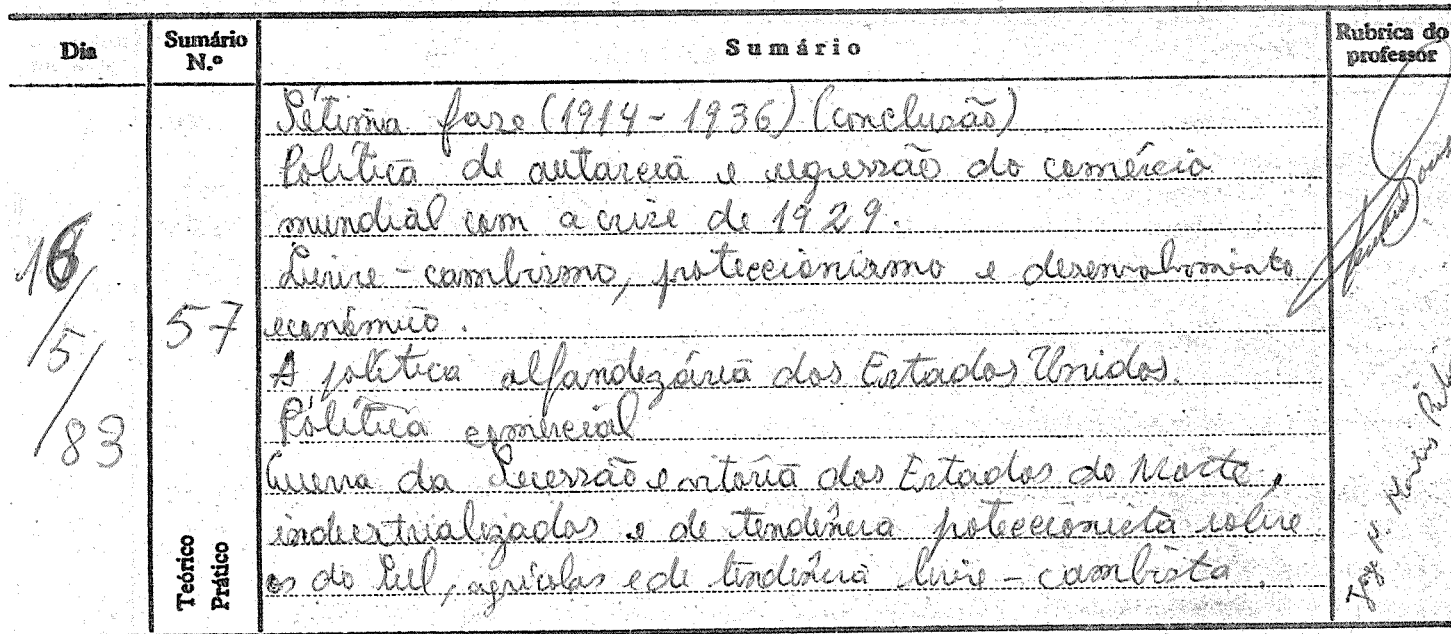 Dia Sumário N.º Sumário Rubrica do professor
Sétima fase (1914 - 1936) (conclusão)
Política de autarcia e regressão do comércio
mundial com a crise de 1929.
Livre-cambismo, proteccionismo e desenvolvimento
económico.
A política alfandegária dos Estados Unidos.
Política comercial
Guerra da Secessão e vitória dos Estados do Norte,
industrializados e de tendência proteccionista sobre
os do Sul, agrícolas e de tendência livre-cambista.
16/5/83
57
Teórico
Prático